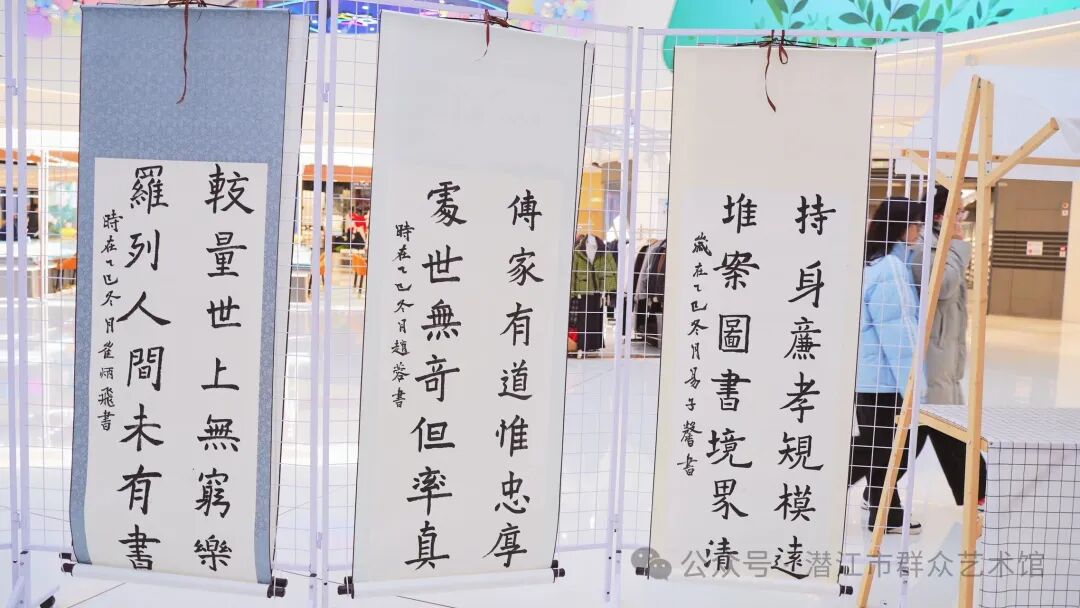 較量世上無窮樂
羅列人間未有書
時在乙巳冬月崔炳飛書
傳家有道惟忠厚
處世無奇但率真
時在乙巳冬月趙蓉書
持身廉孝規模遠
堆案圖書境界清
歲在乙巳冬月易子馨書
公众号 · 潜江市群众艺术馆